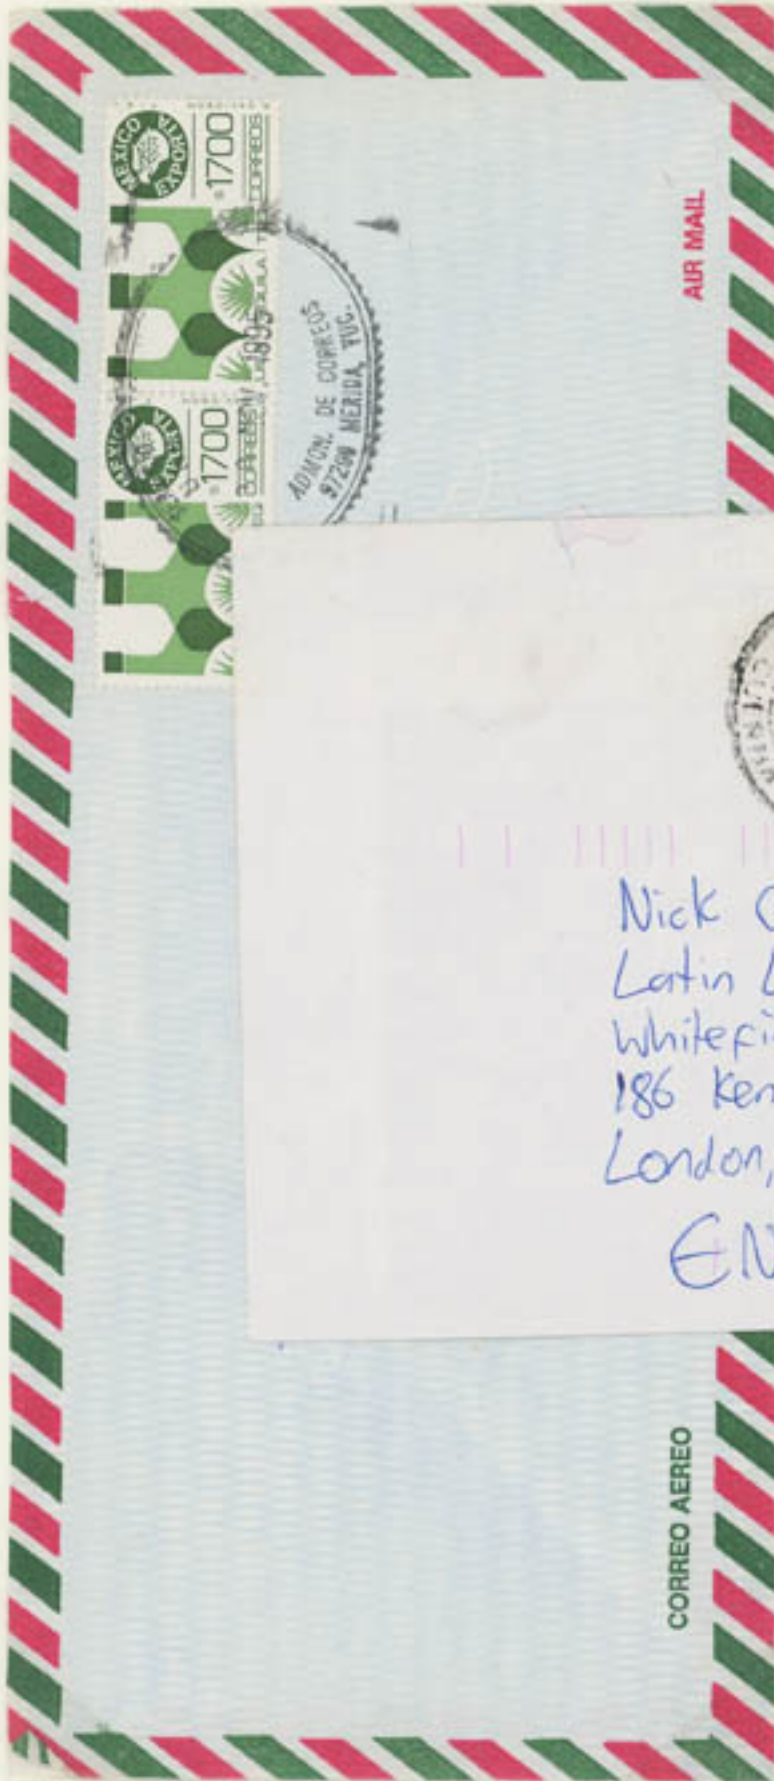 MEXICO EXPORTA
$1700
CORREOS
TEQUILA
MEXICO EXPORTA
$1700
CORREOS
NOV 1995
ADMON. DE CORREOS
97200 MERIDA, YUC.
AIR MAIL
Nick
Latin
186 Ken
London,
EN
CORREO AEREO